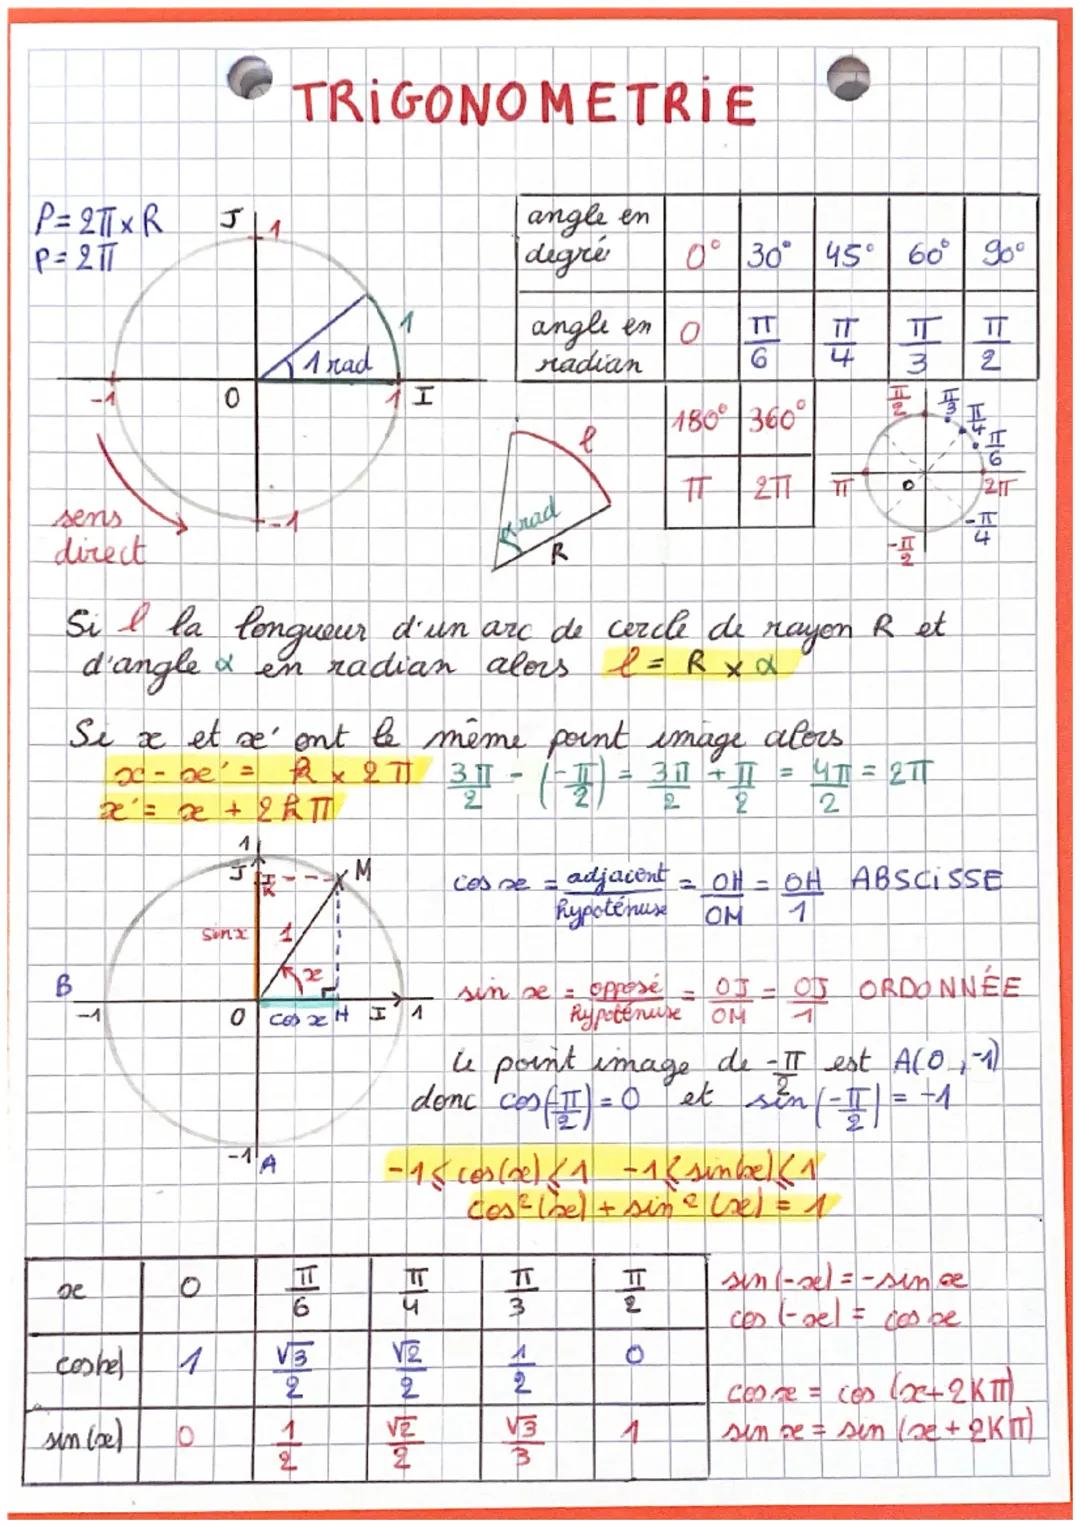 TRiGONOMETRiE
P = 2π × R
P = 2π
J
1
1
1 rad
-1
O
1
I
-1
sens
direct
angle en degré | 0° | 30° | 45° | 60° | 90°
angle en radian | 0 | π/6 | π/4 | π/3 | π/2
180° | 360°
π | 2π
l
α rad
R
π/2
π/3
π/4
π/6
π
O
2π
-π/4
-π/2
Si l la longueur d'un arc de cercle de rayon R et
d'angle α en radian alors l = R × α
Si x et x' ont le même point image alors
x - x' = k × 2π 3π/2 - (-π/2) = 3π/2 + π/2 = 4π/2 = 2π
x' = x + 2kπ
1
J
K
M
sin x
1
x
B
-1
O
cos x
H
I
1
-1
A
cos x = adjacent/hypoténuse = OH/OM = OH/1 ABSCiSSE
sin x = opposé/hypoténuse = OJ/OM = OJ/1 ORDONNÉE
le point image de -π/2 est A(0, -1)
donc cos(-π/2) = 0 et sin(-π/2) = -1
-1 ⩽ cos(x) ⩽ 1 -1 ⩽ sin(x) ⩽ 1
cos²(x) + sin²(x) = 1
x | 0 | π/6 | π/4 | π/3 | π/2
cos(x) | 1 | √3/2 | √2/2 | 1/2 | 0
sin(x) | 0 | 1/2 | √2/2 | √3/3 | 1
sin(-x) = -sin x
cos(-x) = cos x
cos x = cos (x + 2Kπ)
sin x = sin (x + 2Kπ)